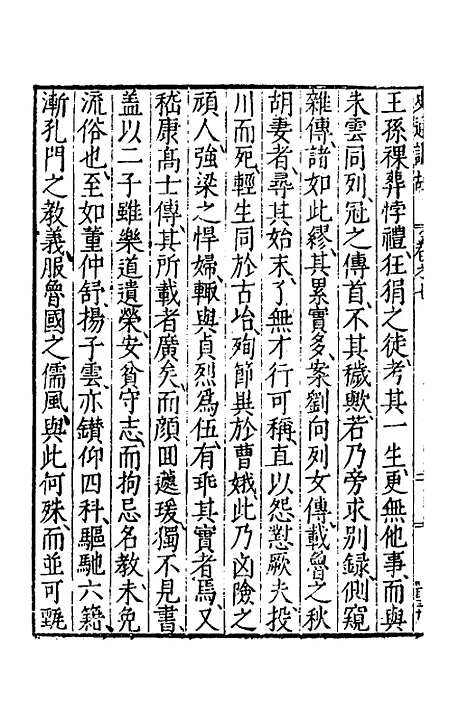 王孫祼葬悖禮狂狷之徒考其一生更無他事而與
朱雲同列冠之傳首不其穢歟若乃旁求別錄側窺
雜傳諸如此繆其累實多案劉向列女傳載魯之秋
胡妻者尋其始末了無才行可稱直以怨懟厥夫投
川而死輕生同於古冶殉節異於曹娥此乃凶險之
頑人強梁之悍婦輙與貞烈爲伍有乖其實者焉又
嵇康髙士傳其所載者廣矣而顏回蘧瑗獨不見書
盖以二子雖樂道遺榮安貧守志而拘忌名教未免
流俗也至如董仲舒揚子雲亦鑚仰四科驅馳六籍
漸孔門之教義服魯國之儒風與此何殊而並可甄